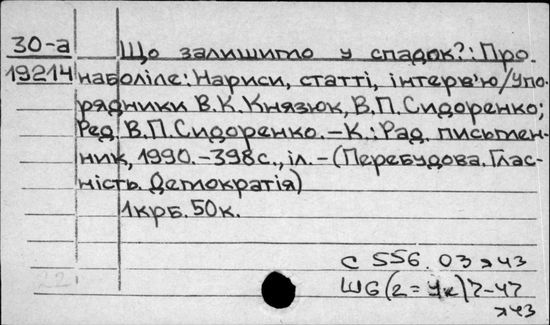 30-а Що залишимо у спадок?: Про.
19214 наболіле: Нариси, статті, інтерв'ю/Упо-
рядники В.К. Князюк, В.П. Сидоренко;
Ред. В.П. Сидоренко. – К.: Рад. письмен-
ник, 1990. – 398с., іл. – (Перебудова. Глас-
ність. Демократія)
1крб. 50к.
С 556.03 я43
Ш6(2=Ук)7-47
я43
22